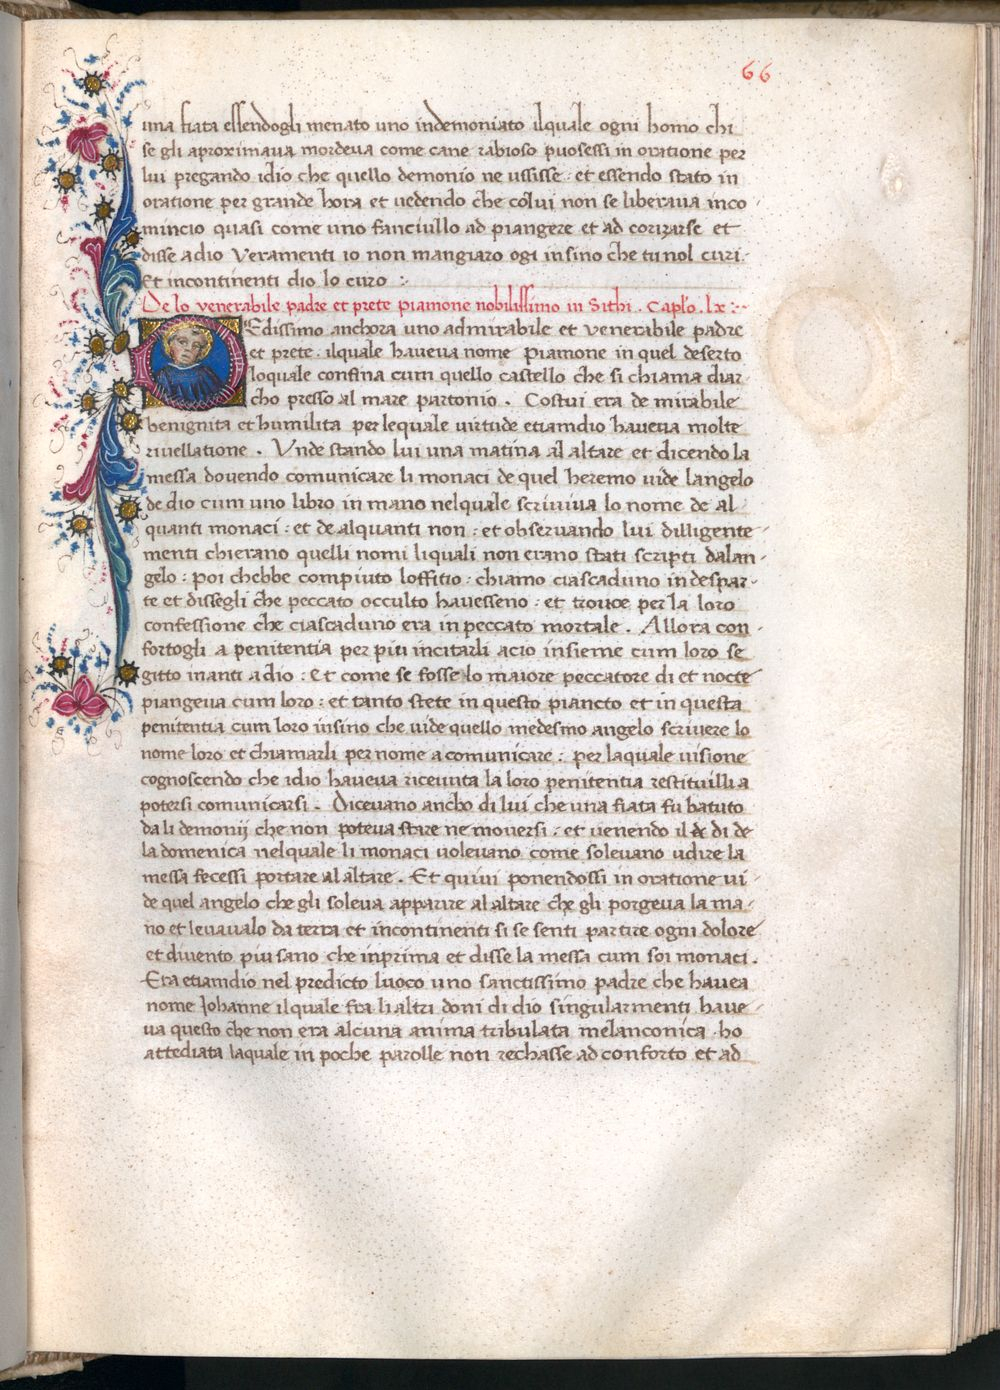 66
una fiata essendogli menato uno indemoniato ilquale ogni homo chi
se gli aproximaua mordeua come cane rabioso puosessi in oratione per
lui pregando idio che quello demonio ne ussisse · et essendo stato in
oratione per grande hora et uedendo che colui non se liberaua inco
mincio quasi come uno fanciullo ad piangere et ad corizarse et
disse a dio Veramenti io non mangiaro ogi insino che tu nol curi.
Et incontinenti dio lo curo :
De lo venerabile padre et prete piamone nobilissimo in Sithi . Caplo . lx :
Edissimo anchora uno admirabile et venerabile padre
et prete . ilquale haueua nome piamone in quel deserto
loquale confina cum quello castello che si chiama diar
cho presso al mare partonio . Costui era de mirabile
benignita et humilita per lequale uirtude etiamdio haueua molte
riuellatione . Vnde stando lui una matina al altare et dicendo la
messa douendo comunicare li monaci de quel heremo uide langelo
de dio cum uno libro in mano nelquale scriuiua lo nome de al
quanti monaci : et de alquanti non : et obseruando lui dilligente
menti chierano quelli nomi liquali non erano stati scripti dalan
gelo : poi chebbe compiuto loffitio : chiamo ciascaduno in despar
te et dissegli che peccato occulto hauesseno : et trouoe per la loro
confessione che ciascaduno era in peccato mortale . Allora con
fortogli a penitentia per piu incitarli acio insieme cum loro se
gitto inanti a dio : Et come se fosse lo maiore peccatore di et nocte
piangeua cum loro : et tanto stete in questo piancto et in questa
penitentia cum loro insino che uide quello medesmo angelo scriuere lo
nome loro et chiamarli per nome a comunicare : per laquale uisione
cognoscendo che idio haueua riceuuta la loro penitentia restituilli a
potersi comunicarsi . Diceuano ancho di lui che una fiata fu batuto
da li demonij che non poteua stare ne mouersi : et uenendo il di de
la domenica nelquale li monaci uoleuano come soleuano udire la
messa fecessi portare al altare . Et quiui ponendossi in oratione ui
de quel angelo che gli soleua apparire al altare che gli porgeua la ma
no et leuaualo da terra et incontinenti si se senti partire ogni dolore
et diuento piu sano che inprima et disse la messa cum soi monaci .
Era etiamdio nel predicto luoco uno sanctissimo padre che hauea
nome Johanne ilquale fra li altri doni di dio singularmenti haue
ua questo che non era alcuna anima tribulata melanconica ho
attediata laquale in poche parolle non rechasse ad conforto et ad